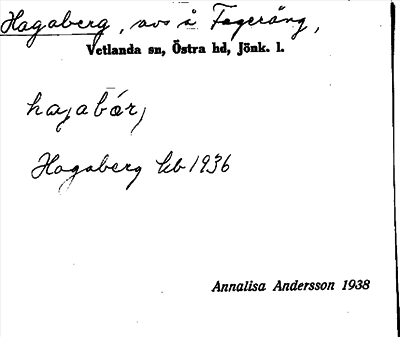 Hagaberg, avs å Fageräng,
Vetlanda sn, Östra hd, Jönk. l.
hagabär,
Hagaberg kb 1936
Annalisa Andersson 1938